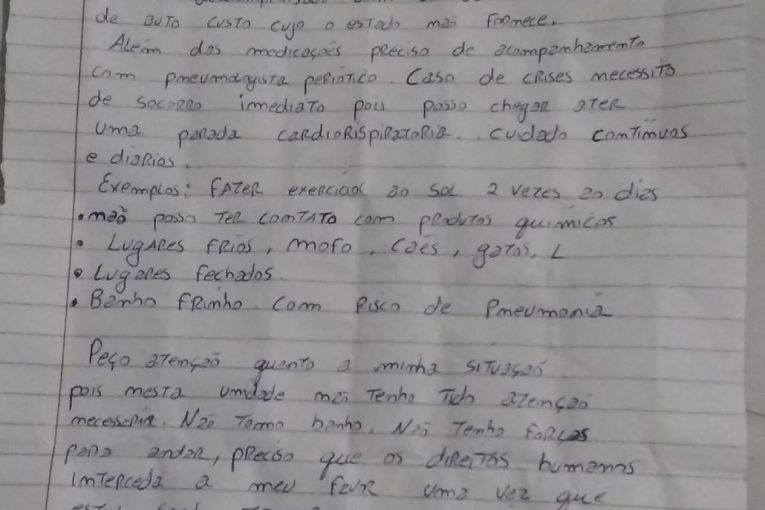 de auto custo cujo o estado não fornece.
Além das medicações preciso de acompanhamento
com pneumologista periotico. Caso de crises necessito
de socorro imediato pois posso chegar ater
uma parada cardiorispiratoria. cudado continuos
e diarios.
Exemplos: FAZER exercicios ao sol 2 vezes ao dies
• não posso ter contato com produtos quimicos
• Lugares frios, mofo, cães, gatos, L
• Lugares fechados.
• Banho frinho com risco de Pneumonia
Peço atenção quanto a minha situasão
pois nesta unidade não tenho tido atenção
necesseria. Não tomo banho, Não tenho forças
para andar, preciso que os direitos humanos
interceda a meu favor uma vez que